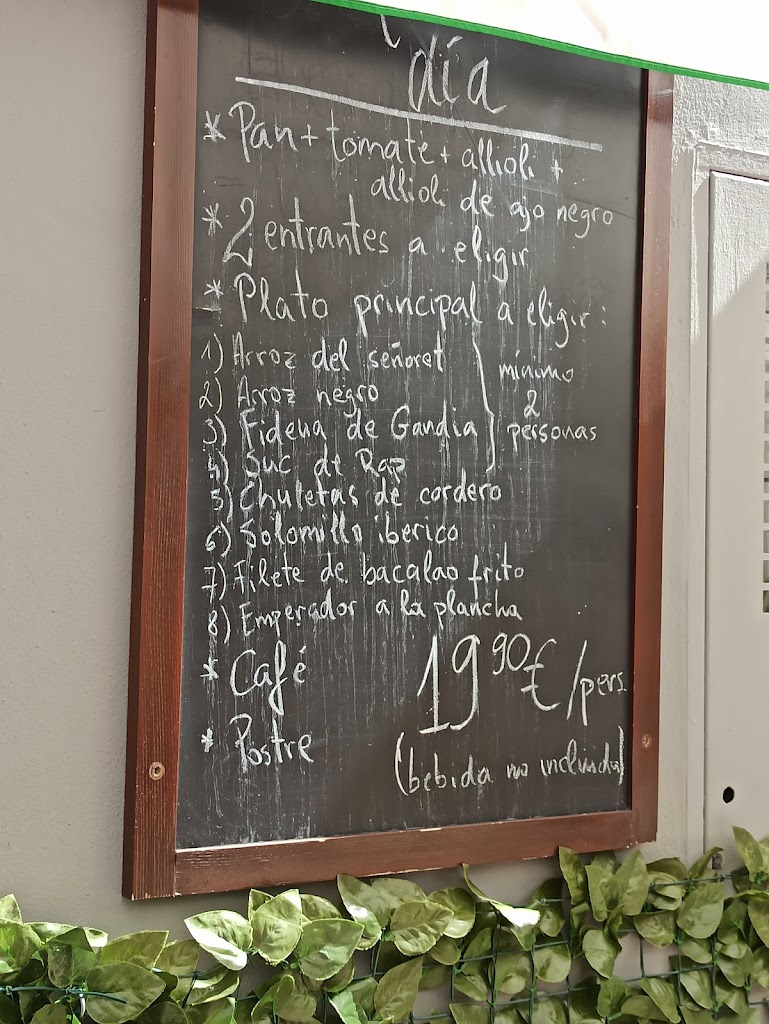 día
* Pan + tomate + allioli +
allioli de ajo negro
* 2 entrantes a eligir
* Plato principal a eligir:
1) Arroz del señoret
2) Arroz negro
3) Fideua de Gandia
4) Suc de Rap
mínimo
2
personas
5) Chuletas de cordero
6) Solomillo iberico
7) Filete de bacalao frito
8) Emperador a la plancha
* Café
* Postre
19,90€/pers.
(bebida no incluida)